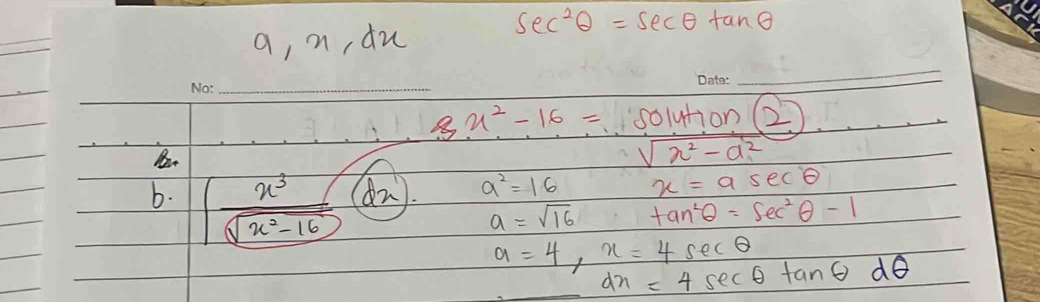 a, x, dx
sec²θ = secθ tanθ
No:
Date:
x² - 16 = solution ②
√x² - a²
b. ∫ x³ / √x² - 16 dx. a² = 16 x = a sec θ
a = √16 tan²θ = sec²θ - 1
a = 4, x = 4 sec θ
dx = 4 sec θ tan θ dθ